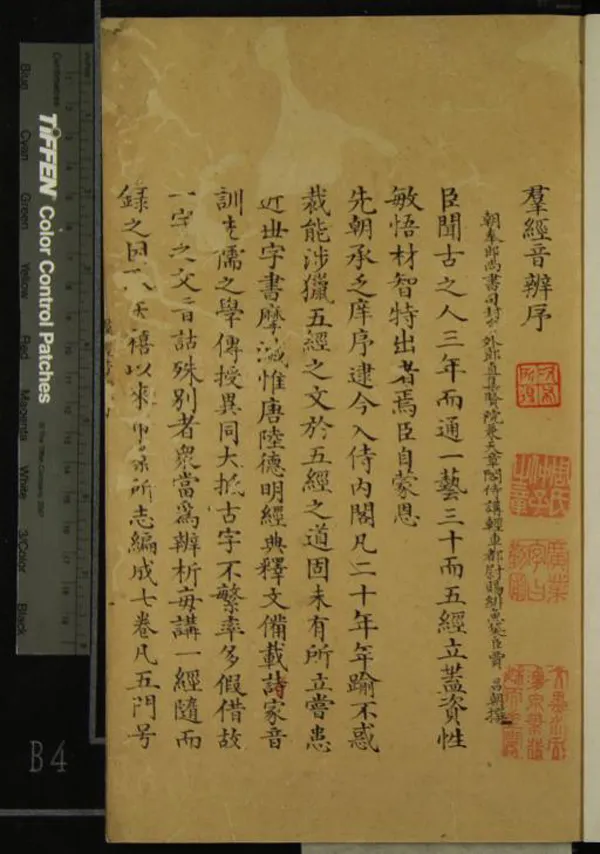 羣經音辨序
朝奉郎尚書司封外郎直集賢院兼天章閣侍講輕車都尉賜緋魚袋臣賈昌朝撰
臣聞古之人三年而通一藝三十而五經立蓋資性
敏悟材智特出者焉臣自蒙恩
先朝承乏庠序逮今入侍內閣凡二十年年踰不惑
裁能涉獵五經之文於五經之道固未有所立嘗患
近世字書摩滅惟唐陸德明經典釋文備載諸家音
訓先儒之學傳授異同大抵古字不繁率多假借故
一字之文音詁殊別者衆當爲辨析每講一經隨而
錄之因天禧以來所志編成七卷凡五門号
TIFFEN Color Control Patches
Blue
Cyan
Green
Yellow
Red
Magenta
White
3/Color
Black
B4